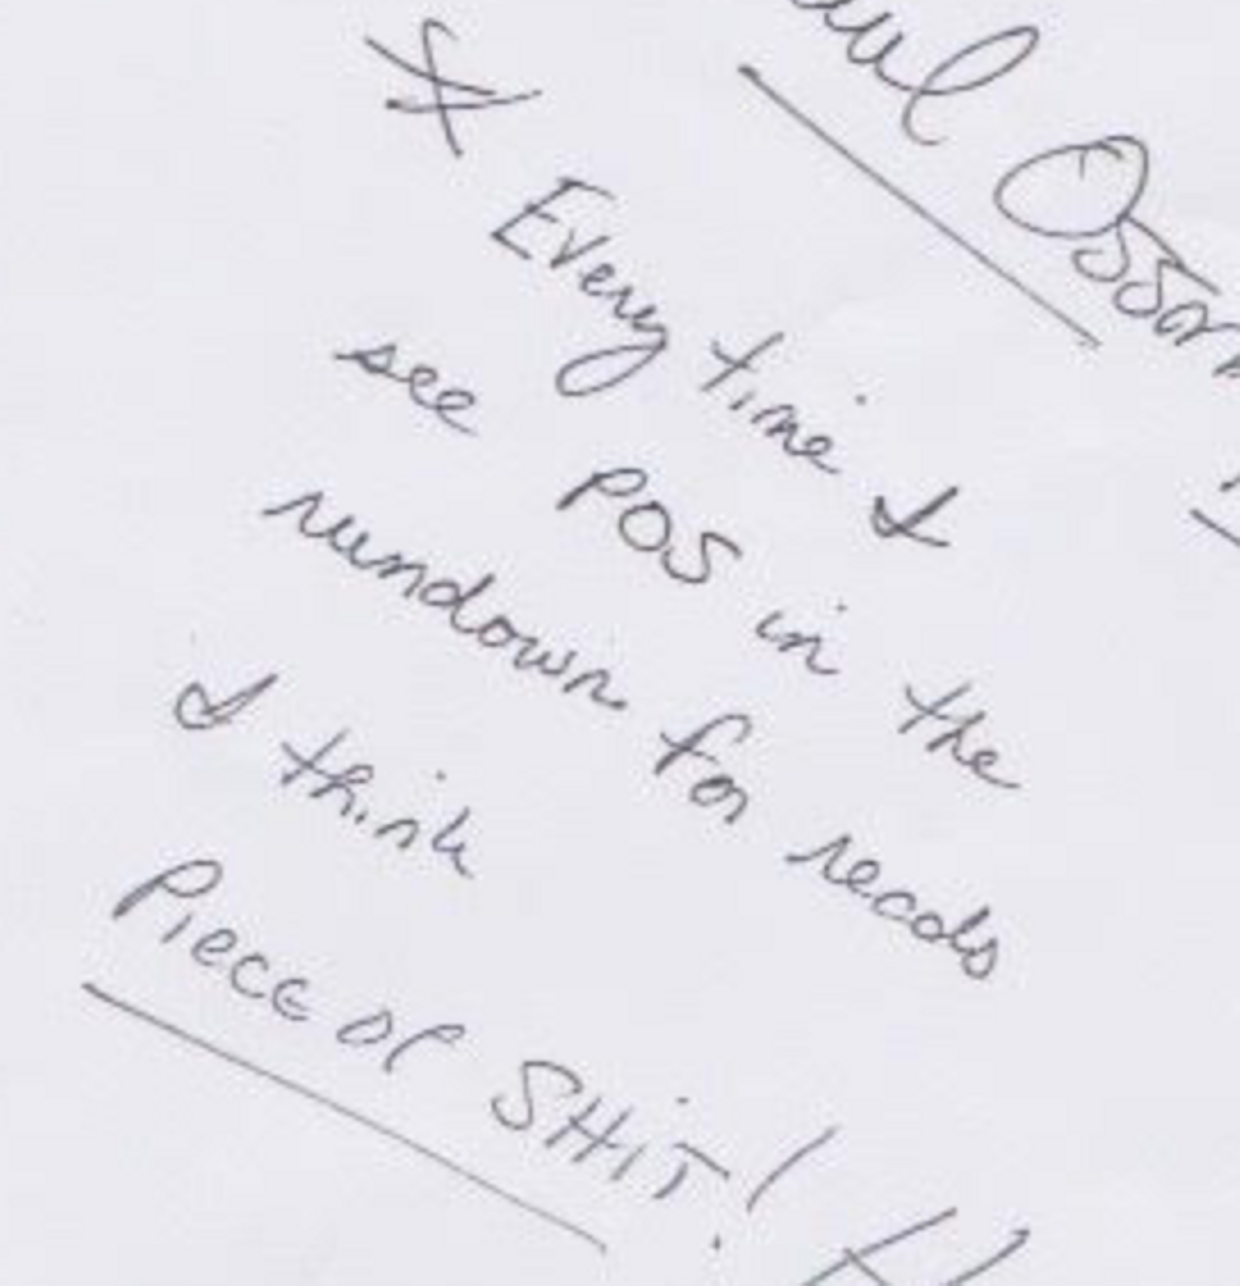 * Every time I
see POS in the
rundown for recods
I think
Piece of SHiT!